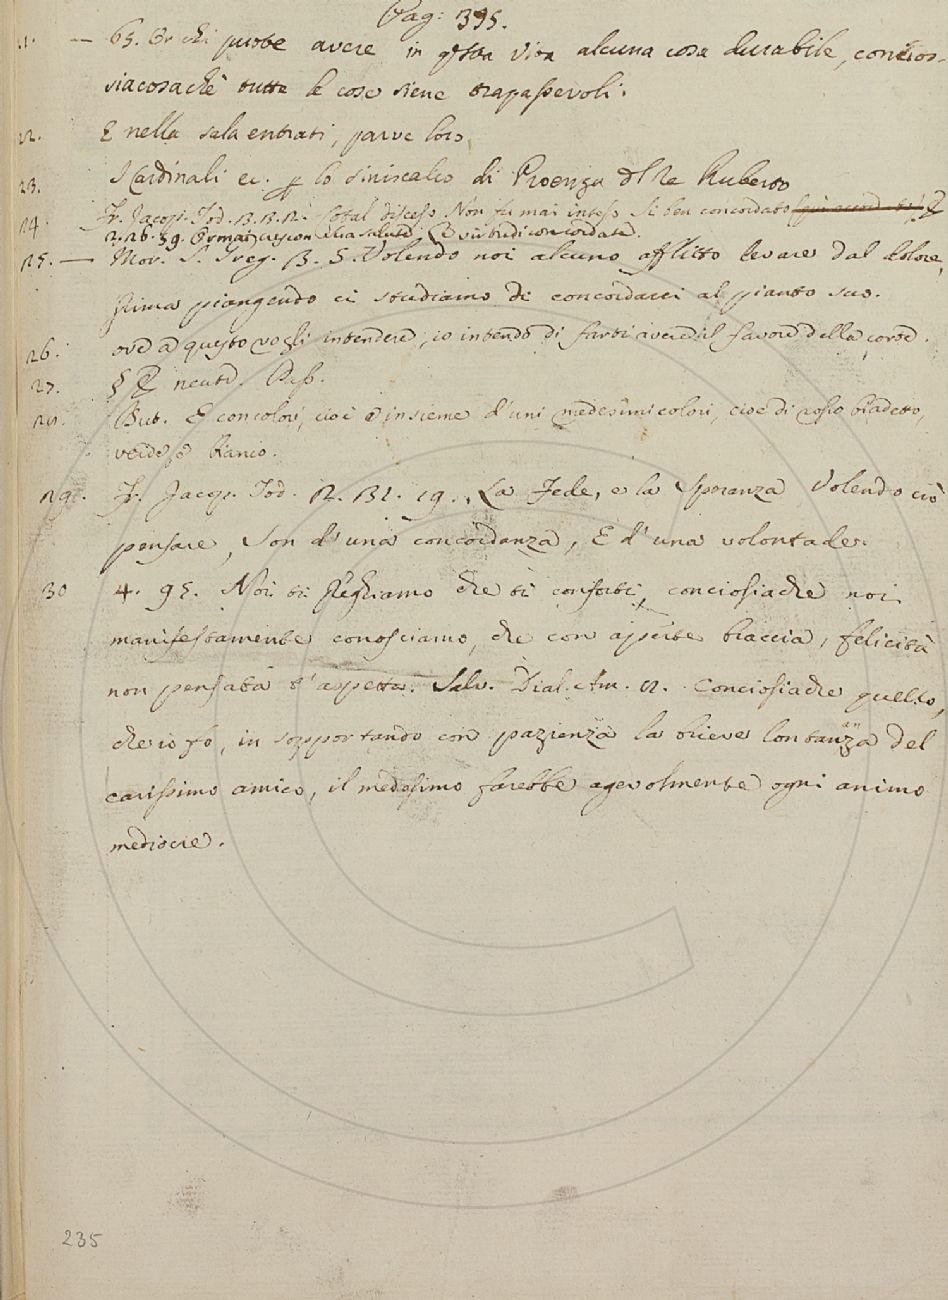 Pag: 395.
21. — 65. Or chi puote avere in qsta vita alcuna cosa durabile, concios-
siacosachè tutte le cose siene trapassevoli.
22. E nella sala entrati, parve loro
23. I Cardinali ec. p lo siniscalco di Proenza d Re Ruberto
24. Fr. Jacop. Tod. Non fu mai inteso Si ben concordato
2. 26. 59. Ormai
25. — Mor. S. Greg. B. 5. Volendo noi alcuno afflitto levare dal dolore,
prima piangendo ci studiamo di concordarci al pianto suo.
26. ove a questo vogli intendere, io intendo di farti avere il favore della corte.
27. § E neutr. Pass.
28. But. E concolori, cioè insieme d'uni medesimi colori, cioè di rosso biadetto,
verde, e bianco.
29. Fr. Jacop. Tod. 2. 32. 19. La Fede, e la Speranza Volendo ciò
pensare, Son d'una concordanza, E d'una volontade.
30 4. 95. Noi ti preghiamo che ti conforti, conciosiachè noi
manifestamente conosciamo, che con aperte braccia, felicità
non pensata t'aspetta. Salv. Dial. Am. 12. Conciosiachè quello,
che io fo, in sopportando con pazienza la brieve lontanza del
carissimo amico, il medesimo farebbe agevolmente ogni animo
mediocre.
235